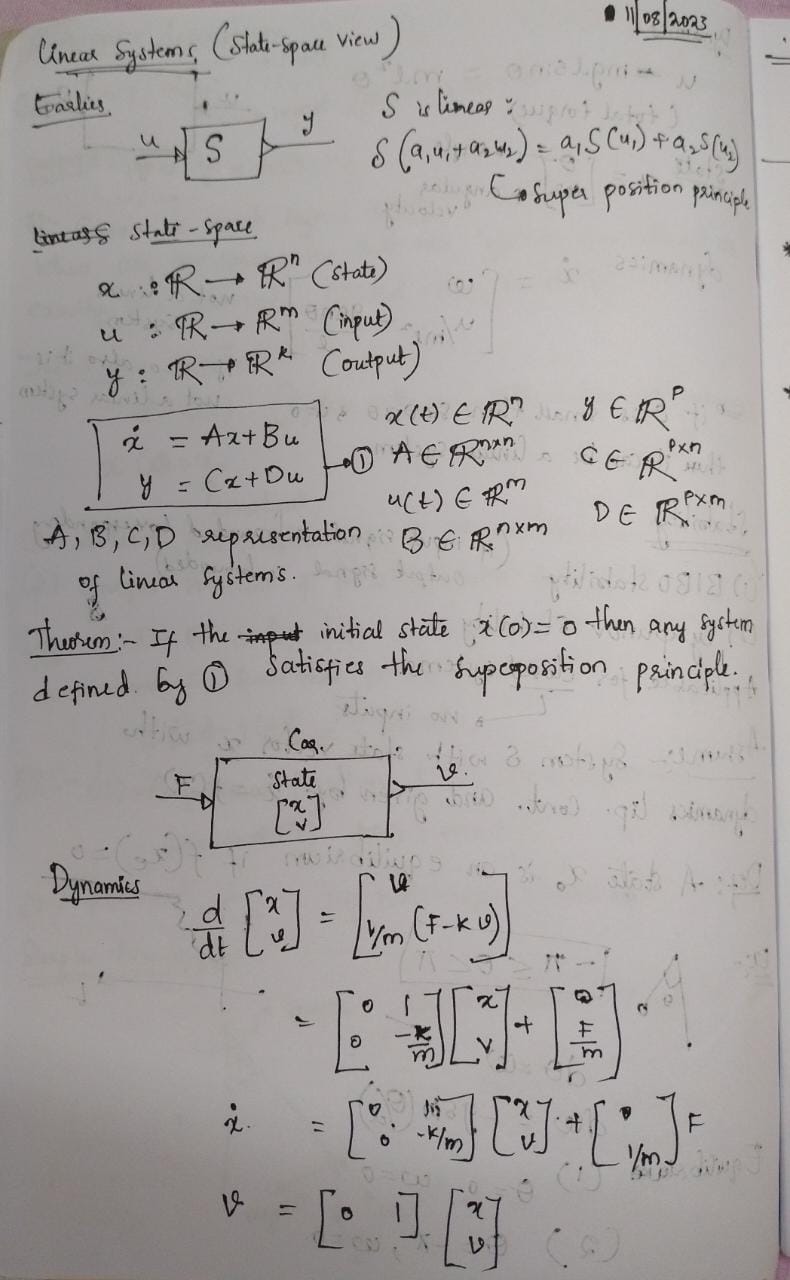 11/08/2023
Linear Systems (State-space view)
Earlier
u S y
S is linear :
S (a₁u₁+a₂u₂) = a₁S(u₁) + a₂S(u₂)
Super position principle
state - space
x : ℝ → ℝⁿ (state)
u : ℝ → ℝᵐ (input)
y : ℝ → ℝᵏ (output)
ẋ = Ax+Bu
y = Cx+Du
①
x(t) ∈ ℝⁿ y ∈ ℝᵖ
A ∈ ℝⁿˣⁿ C ∈ ℝᵖˣⁿ
u(t) ∈ ℝᵐ D ∈ ℝᵖˣᵐ
B ∈ ℝⁿˣᵐ
A, B, C, D representation
of linear systems.
Theorem :- If the input initial state x(0)=0 then any system
defined by ① satisfies the superposition principle.
Car.
F State v.
[x v]
Dynamics
d/dt [x v] = [v 1/m (F-kv)]
= [0 1 0 -k/m] [x v] + [0 F/m]
ẋ = [0 1 0 -k/m] [x v] + [0 1/m] F
v = [0 1] [x v]